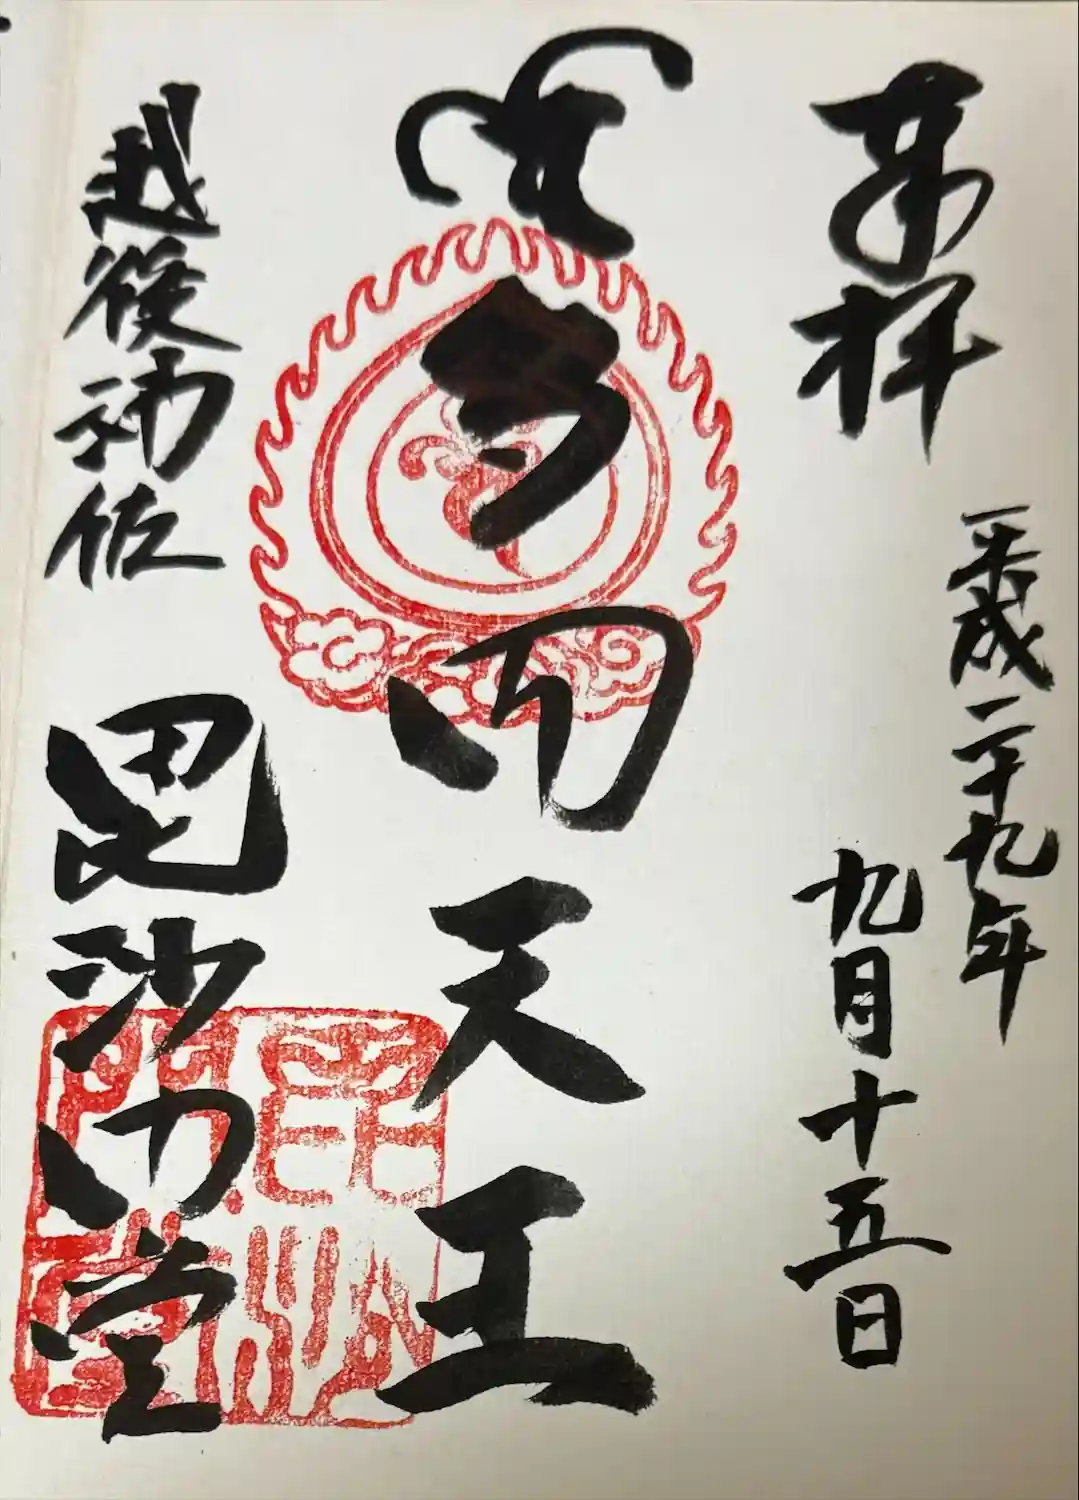 奉拝
平成二十九年
九月十五日
多聞天王
越後浦佐
毘沙門堂
毘沙門堂